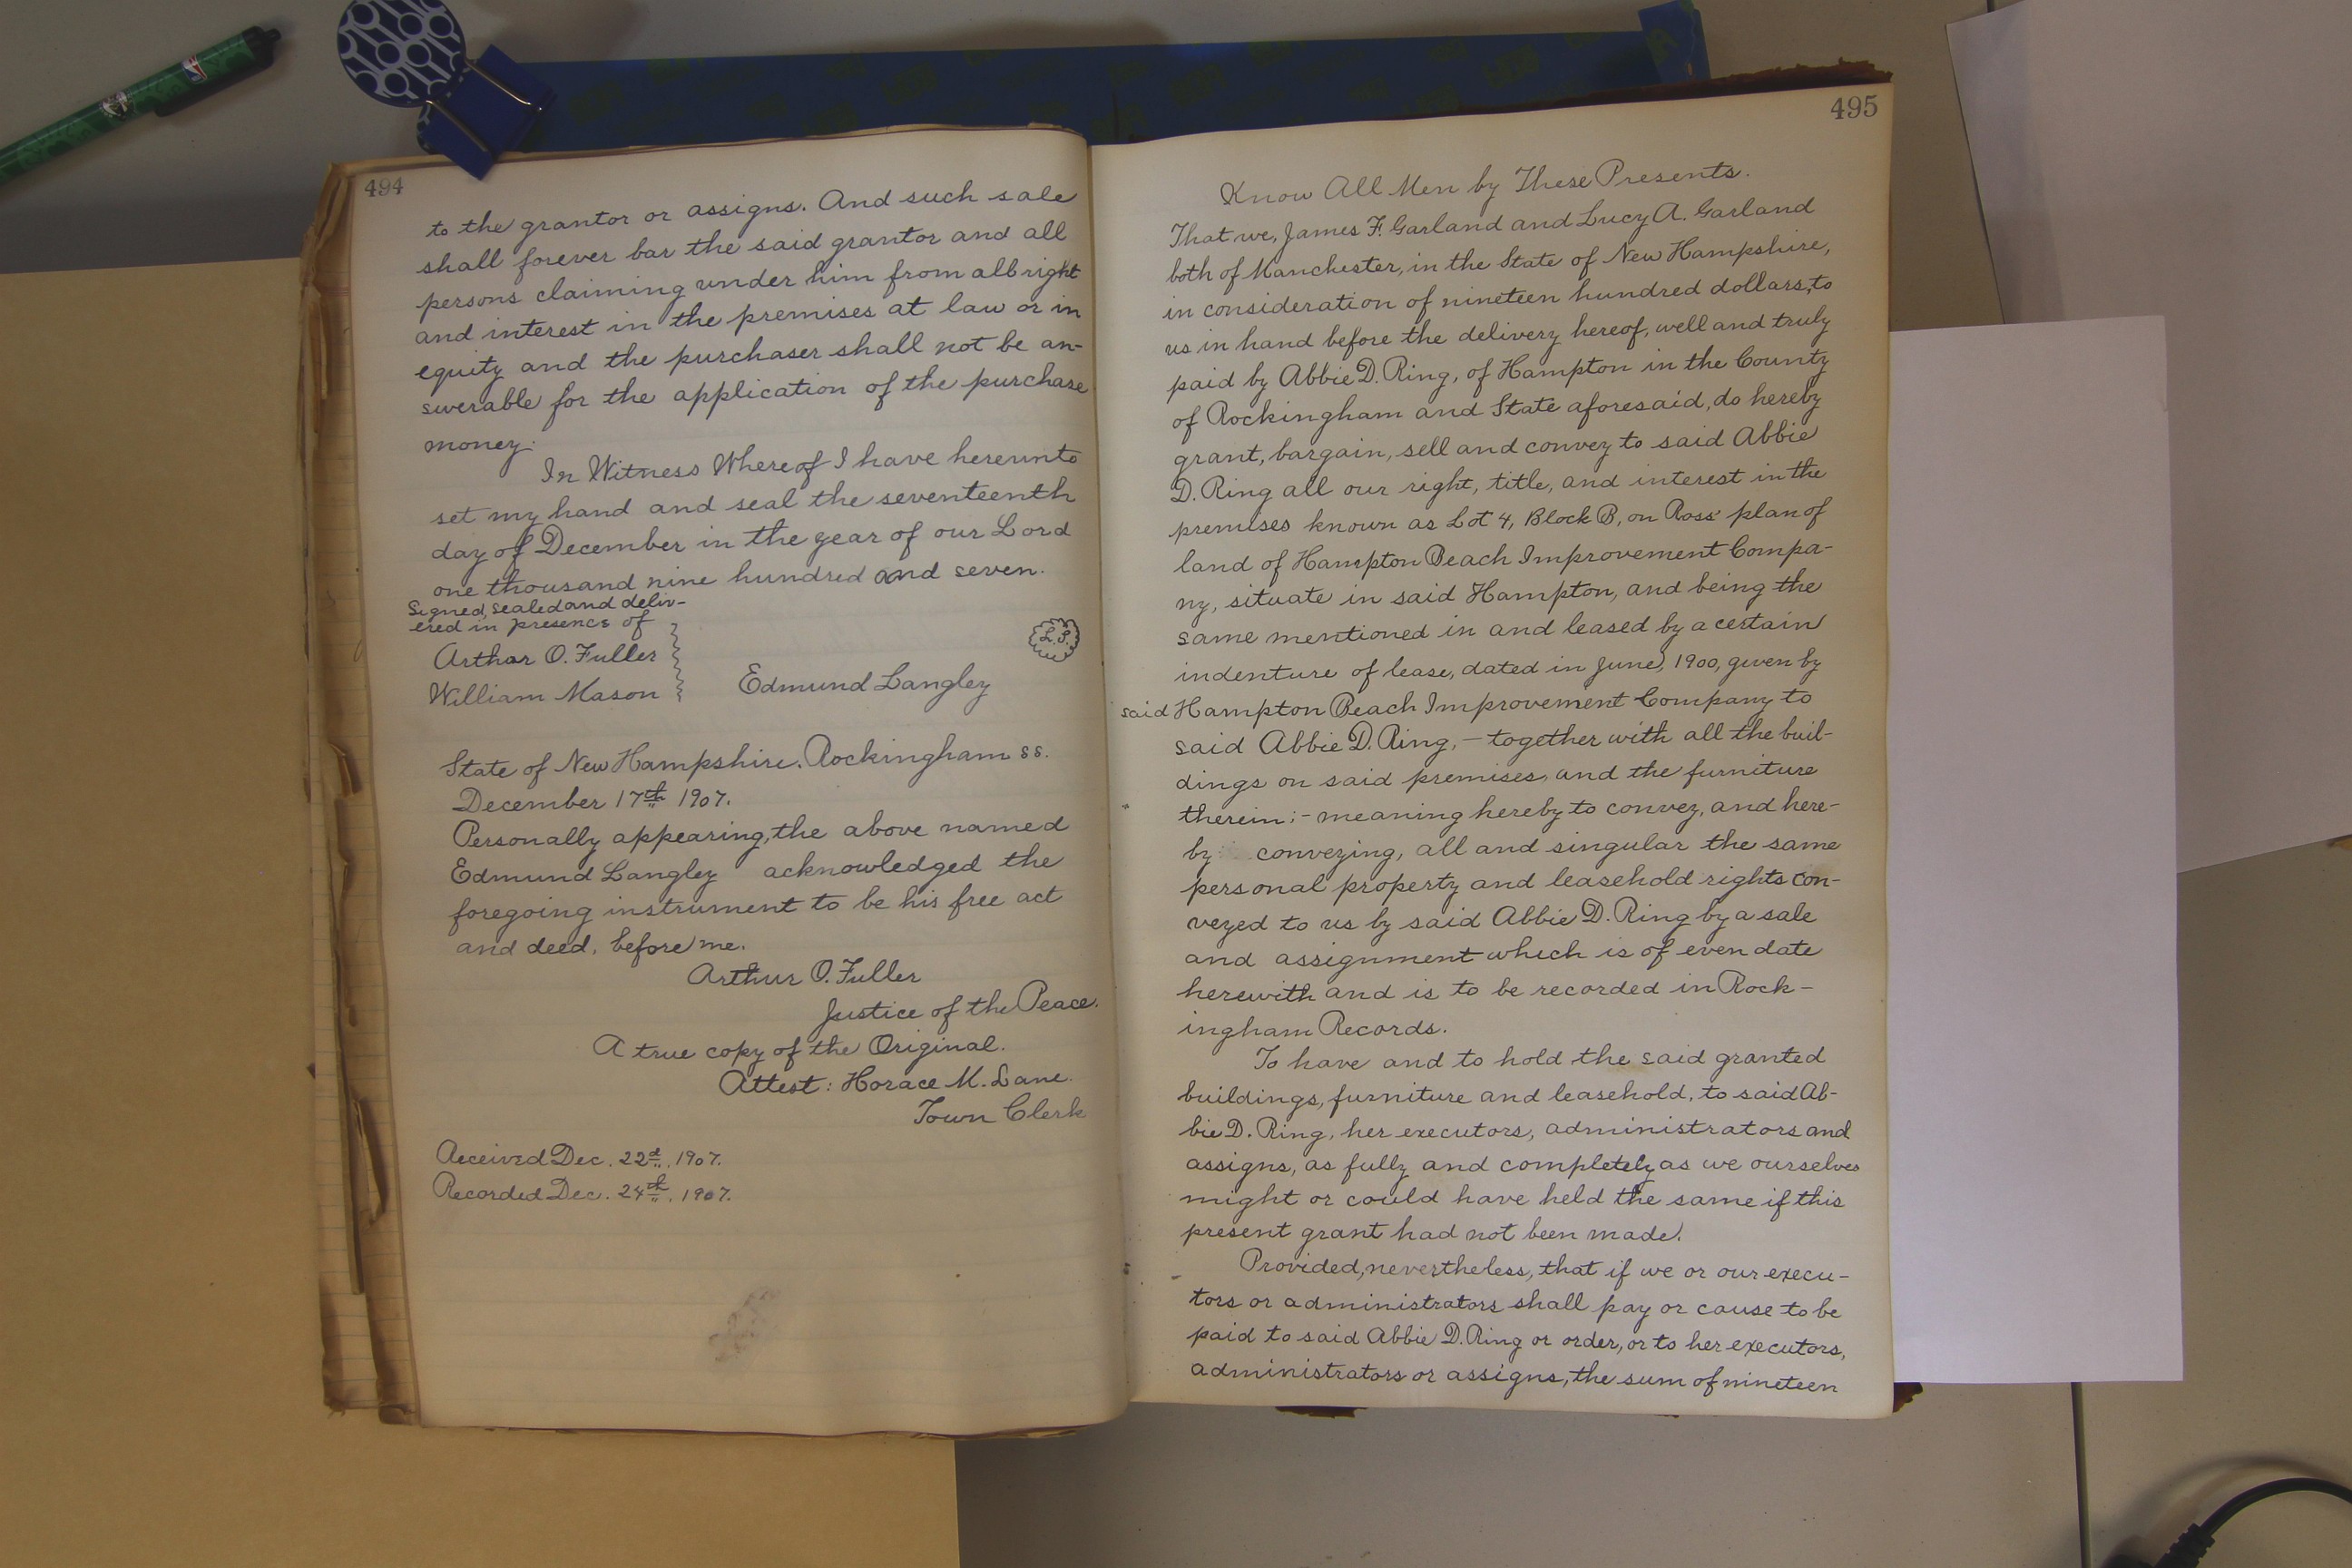 494
to the grantor or assigns. And such sale
shall forever bar the said grantor and all
persons claiming under him from all right
and interest in the premises at law or in
equity and the purchaser shall not be an-
swerable for the application of the purchase
money.
In Witness Whereof I have hereunto
set my hand and seal the seventeenth
day of December in the year of our Lord
one thousand nine hundred and seven.
Signed, sealed and deliv-
ered in presence of
L.S.
Arthur O. Fuller
William Mason Edmund Langley
State of New Hampshire. Rockingham ss.
December 17th 1907.
Personally appearing, the above named
Edmund Langley acknowledged the
foregoing instrument to be his free act
and deed, before me.
Arthur O. Fuller
Justice of the Peace.
A true copy of the Original.
Attest: Horace M. Lane.
Town Clerk
Received Dec. 22d, 1907.
Recorded Dec. 24th, 1907.
495
Know All Men by These Presents.
That we, James F. Garland and Lucy A. Garland
both of Manchester, in the State of New Hampshire,
in consideration of nineteen hundred dollars, to
us in hand before the delivery hereof, well and truly
paid by Abbie D. Ring, of Hampton in the County
of Rockingham and State aforesaid, do hereby
grant, bargain, sell and convey to said Abbie
D. Ring all our right, title, and interest in the
premises known as Lot 4, Block B, on Ross' plan of
land of Hampton Beach Improvement Compa-
ny, situate in said Hampton, and being the
same mentioned in and leased by a certain
indenture of lease, dated in June, 1900, given by
said Hampton Beach Improvement Company to
said Abbie D. Ring, - together with all the buil-
dings on said premises, and the furniture
therein; - meaning hereby to convey, and here-
by conveying, all and singular the same
personal property and leasehold rights con-
veyed to us by said Abbie D. Ring by a sale
and assignment which is of even date
herewith and is to be recorded in Rock-
ingham Records.
To have and to hold the said granted
buildings, furniture and leasehold, to said Ab-
bie D. Ring, her executors, administrators and
assigns, as fully and completely as we ourselves
might or could have held the same if this
present grant had not been made.
Provided, nevertheless, that if we or our execu-
tors or administrators shall pay or cause to be
paid to said Abbie D. Ring or order, or to her executors,
administrators or assigns, the sum of nineteen